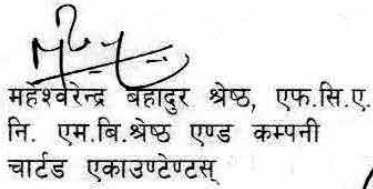 महेश्वरेन्द्र बहादुर श्रेष्ठ, एफ.सि.ए.
नि. एम.बि.श्रेष्ठ एण्ड कम्पनी
चार्टड एकाउण्टेण्टस्